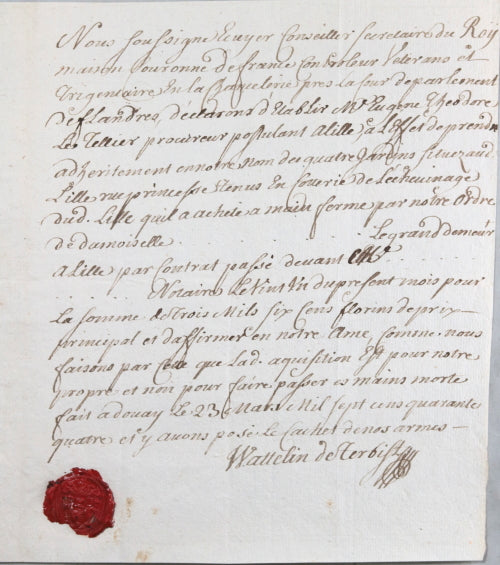 Nous soussigné Ecuyer Conseiller Secretaire du Roy
maison Couronne de france Controlleur Veterans et
Trigentaire En la Chancelerie pres la Cour de parlement
de flandres, declarons d'Etablir Mr Eugene Theodore
Le Tellier procureur postulant a Lille, a L'effet de prendre
adheritement en notre nom de quatre Jardins situez aud.
Lille rue princesse tenus En Cotterie de L'echevinage
dud. Lille qu'il a acheté a main ferme par notre Ordre
de damoiselle . . . . . . . . . . Legrand demeurt
A Lille par Contrat passé devant Me
. . . . . . Notaire Le vint un du present mois pour
La somme de Trois Mils Six Cens florins de prix
principal et d'affirmer en notre Ame, Comme nous
faisons par Cette que Lad. aquisition Est pour notre
propre et non pour faire passer es mains morte
fait a douay Le 23 Mars Mil Sept cens quarante
quatre et y avons posé Le Cachet de nos armes —
Wattelin de Terbist